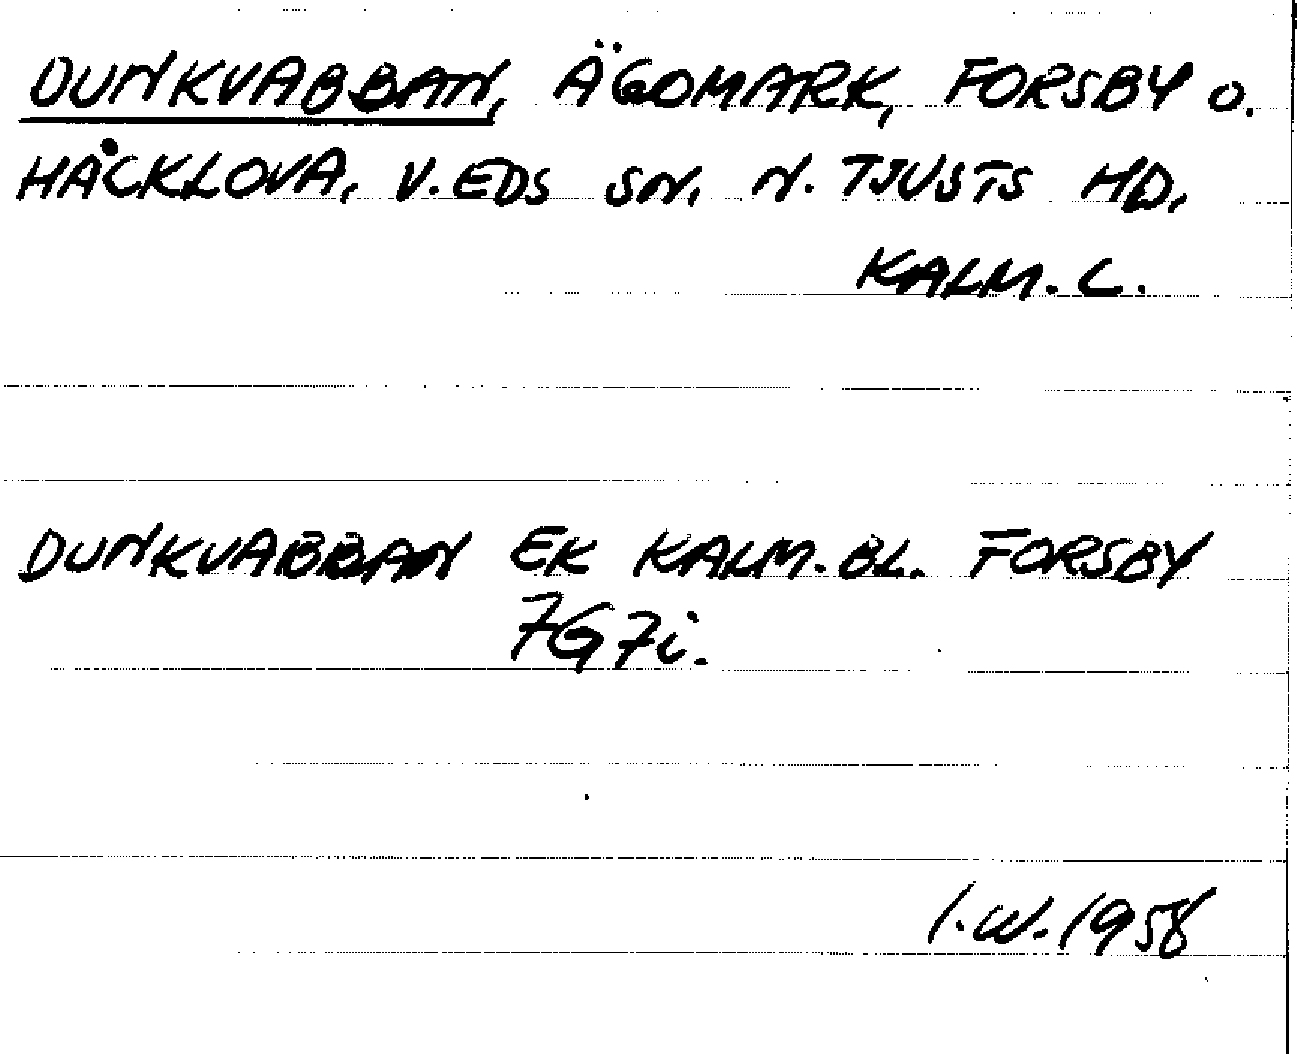 DUNKVABBAN, ÄGOMARK, FORSBY O.
HÅCKLOVA, V. EDS SN, N. TJUSTS HD,
KALM. L.
DUNKVABBAN EK KALM. BL. FORSBY
7G7i.
I.W. 1958